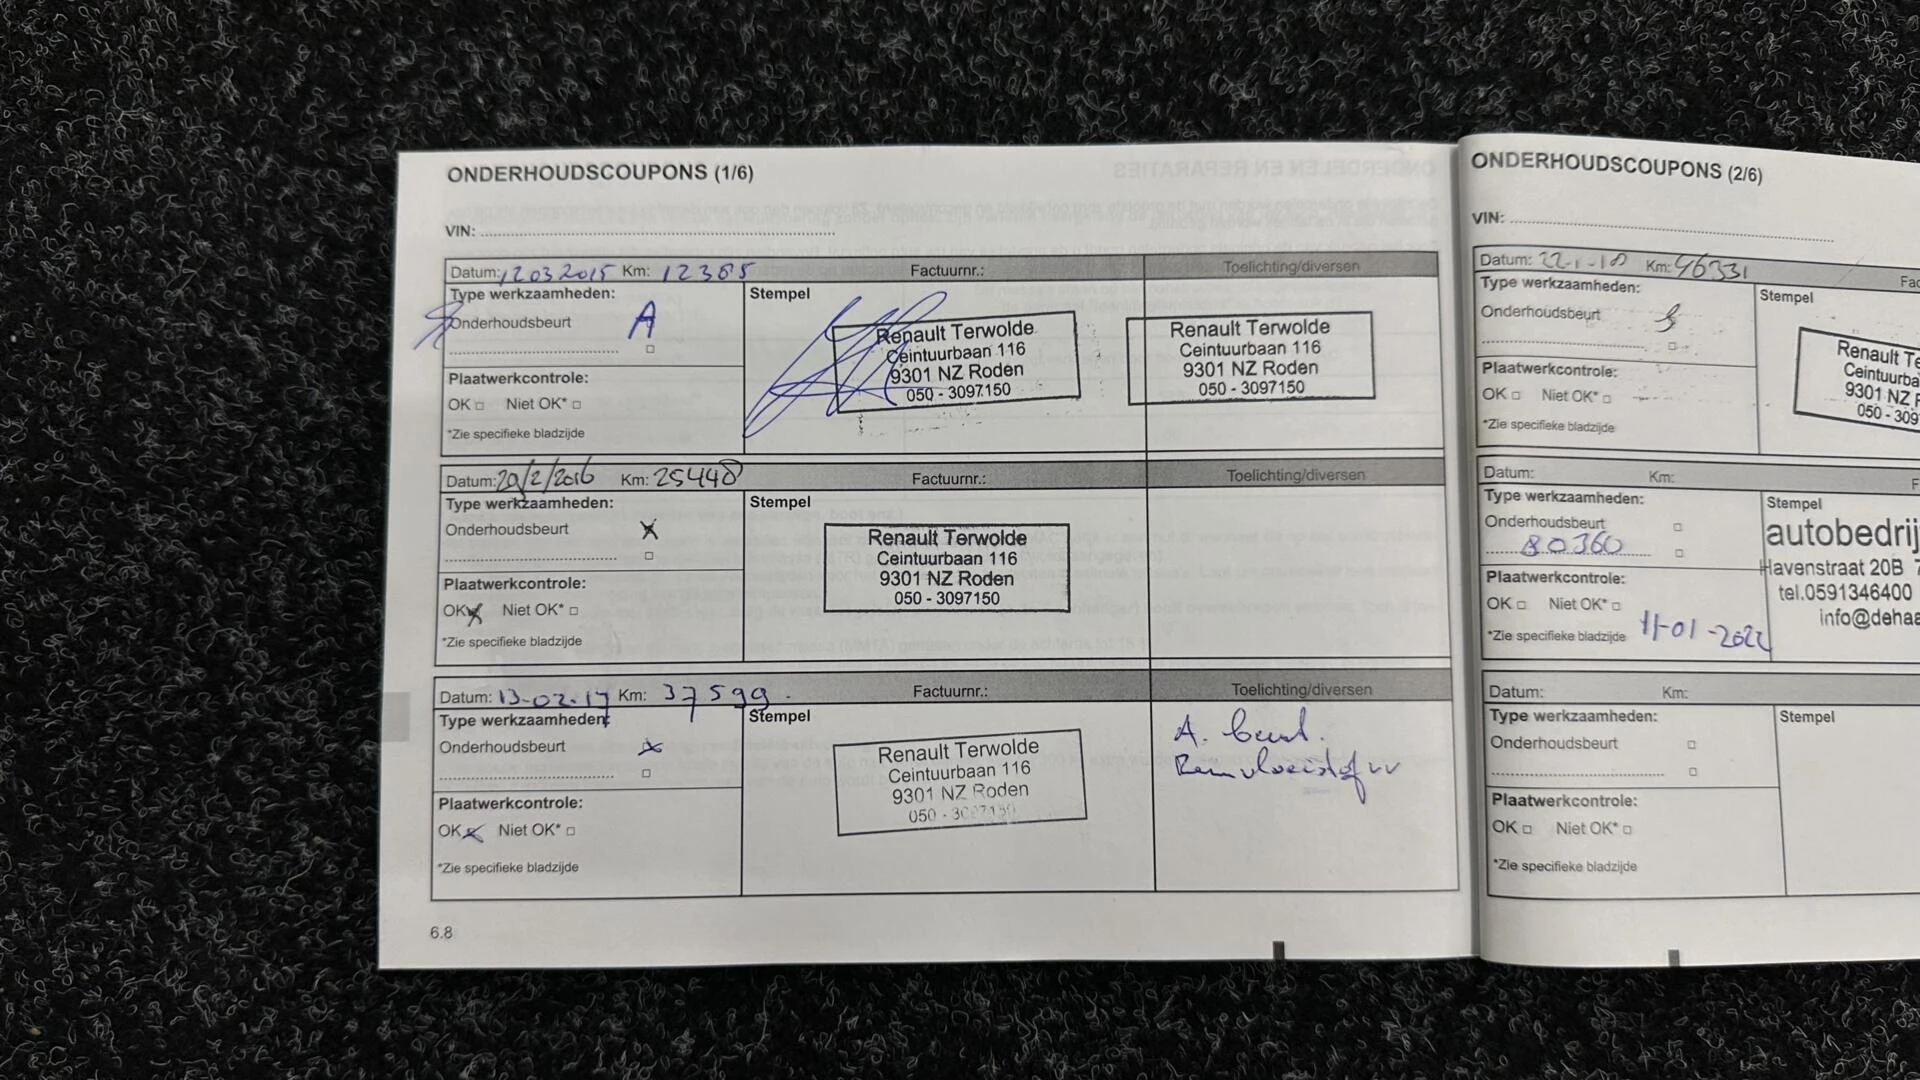 ONDERHOUDSCOUPONS (1/6)
VIN:
Datum: 12032015 Km: 12385 Factuurnr.: Toelichting/diversen
Type werkzaamheden:
Stempel
Onderhoudsbeurt A
Renault Terwolde
Ceintuurbaan 116
9301 NZ Roden
050 - 3097150
Renault Terwolde
Ceintuurbaan 116
9301 NZ Roden
050 - 3097150
Plaatwerkcontrole:
OK Niet OK*
*Zie specifieke bladzijde
Datum: 29/2/2016 Km: 25448 Factuurnr.: Toelichting/diversen
Type werkzaamheden:
Stempel
Onderhoudsbeurt X
Renault Terwolde
Ceintuurbaan 116
9301 NZ Roden
050 - 3097150
Plaatwerkcontrole:
OK X Niet OK*
*Zie specifieke bladzijde
Datum: 13-02-17 Km: 37599 Factuurnr.: Toelichting/diversen
Type werkzaamheden:
Stempel
Onderhoudsbeurt X
Renault Terwolde
Ceintuurbaan 116
9301 NZ Roden
050 - 3097150
A. beurt.
Remvloeistof vv
Plaatwerkcontrole:
OK X Niet OK*
*Zie specifieke bladzijde
6.8
ONDERHOUDSCOUPONS (2/6)
VIN:
Datum: 22-1-18 Km: 46331 Fac
Type werkzaamheden:
Stempel
Onderhoudsbeurt
Renault Te
Ceintuurba
9301 NZ R
050 - 309
Plaatwerkcontrole:
OK Niet OK*
*Zie specifieke bladzijde
Datum: Km: F
Type werkzaamheden:
Stempel
Onderhoudsbeurt
80360
autobedrij
Havenstraat 20B 7
tel.0591346400
info@dehaa
Plaatwerkcontrole:
OK Niet OK*
*Zie specifieke bladzijde 11-01-2022
Datum: Km:
Type werkzaamheden:
Stempel
Onderhoudsbeurt
Plaatwerkcontrole:
OK Niet OK*
*Zie specifieke bladzijde